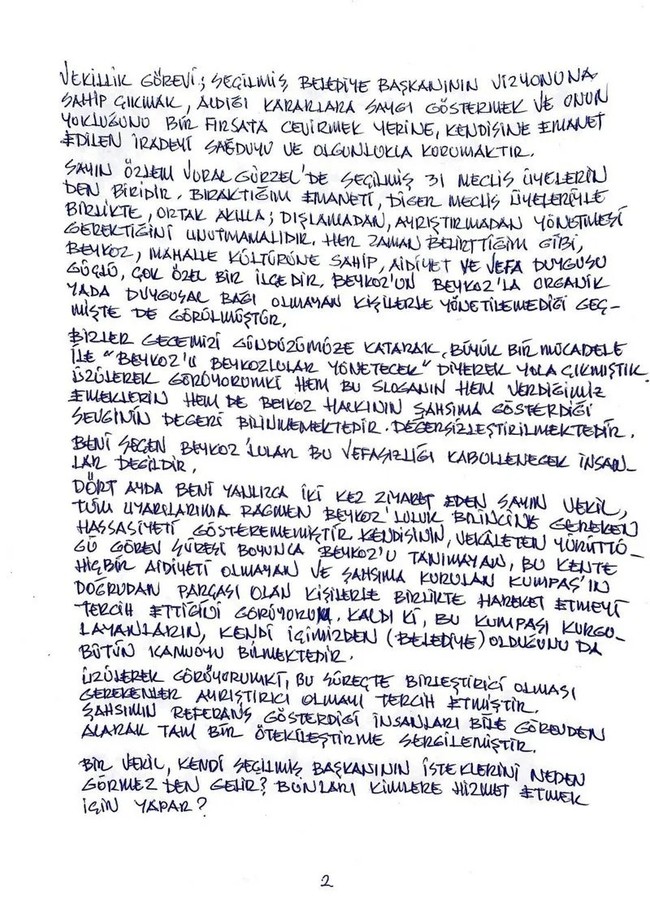 VEKİLLİK GÖREVİ; SEÇİLMİŞ BELEDİYE BAŞKANININ VİZYONUNA
SAHİP ÇIKMAK, ALDIĞI KARARLARA SAYGI GÖSTERMEK VE ONUN
YOKLUĞUNU BİR FIRSATA ÇEVİRMEK YERİNE, KENDİSİNE EMANET
EDİLEN İRADEYİ SAĞDUYU VE OLGUNLUKLA KORUMAKTIR.
SAYIN ÖZLEM VURAL GÜRZEL'DE SEÇİLMİŞ 31 MECLİS ÜYELERİN
DEN BİRİDİR. BIRAKTIĞIM EMANETİ, DİĞER MECLİS ÜYELERİYLE
BİRLİKTE, ORTAK AKILLA; DIŞLAMADAN, AYRIŞTIRMADAN YÖNETMESİ
GEREKTİĞİNİ UNUTMAMALIDIR. HER ZAMAN BELİRTTİĞİM GİBİ,
BEYKOZ, MAHALLE KÜLTÜRÜNE SAHİP, AİDİYET VE VEFA DUYGUSU
GÜÇLÜ, ÇOK ÖZEL BİR İLÇEDİR. BEYKOZ'UN BEYKOZ'LA ORGANİK
YADA DUYGUSAL BAĞI OLMAYAN KİŞİLERLE YÖNETİLEMEDİĞİ GEÇ-
MİŞTE DE GÖRÜLMÜŞTÜR.
BİZLER GECEMİZİ GÜNDÜZÜMÜZE KATARAK, BÜYÜK BİR MÜCADELE
İLE "BEYKOZ'U BEYKOZLULAR YÖNETECEK" DİYEREK YOLA ÇIKMIŞTIK.
ÜZÜLEREK GÖRÜYORUMKİ HEM BU SLOGANIN HEM VERDİĞİMİZ
EMEKLERİN HEM DE BEYKOZ HALKININ ŞAHSIMA GÖSTERDİĞİ
SEVGİNİN DEĞERİ BİLİNMEMEKTEDİR. DEĞERSİZLEŞTİRİLMEKTEDİR.
BENİ SEÇEN BEYKOZ'LULAR BU VEFASIZLIĞI KABULLENECEK İNSAN-
LAR DEĞİLDİR.
DÖRT AYDA BENİ YALNIZCA İKİ KEZ ZİYARET EDEN SAYIN VEKİL,
TÜM UYARILARIMA RAĞMEN BEYKOZ'LULUK BİLİNCİNE GEREKEN
HASSASİYETİ GÖSTEREMEMİŞTİR. KENDİSİNİN, VEKÂLETEN YÜRÜTTÜ-
ĞÜ GÖREV SÜRESİ BOYUNCA BEYKOZ'U TANIMAYAN, BU KENTE
HİÇBİR AİDİYETİ OLMAYAN VE ŞAHSIMA KURULAN KUMPAS'IN
DOĞRUDAN PARÇASI OLAN KİŞİLERLE BİRLİKTE HAREKET ETMEYİ
TERCİH ETTİĞİNİ GÖRÜYORUM. KALDI Kİ, BU KUMPASI KURGU-
LAYANLARIN, KENDİ İÇİMİZDEN (BELEDİYE) OLDUĞUNU DA
BÜTÜN KAMUOYU BİLMEKTEDİR.
ÜZÜLEREK GÖRÜYORUMKİ, BU SÜREÇTE BİRLEŞTİRİCİ OLMASI
GEREKENLER AYRIŞTIRICI OLMAYI TERCİH ETMİŞTİR.
ŞAHSIMIN REFERANS GÖSTERDİĞİ İNSANLARI BİLE GÖREVDEN
ALARAK TAM BİR ÖTEKİLEŞTİRME SERGİLEMİŞTİR.
BİR VEKİL, KENDİ SEÇİLMİŞ BAŞKANININ İSTEKLERİNİ NEDEN
GÖRMEZ DEN GELİR? BUNLARI KİMLERE HİZMET ETMEK
İÇİN YAPAR?
2